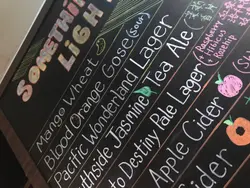 SOMETHIN
LIGH
Mango Wheat
Blood Orange Gose (Sour)
Pacific Wonderland Lager
thside Jasmine Tea Ale
to Destiny Pale Lager
Hibiscus
Apple Cider
Cider